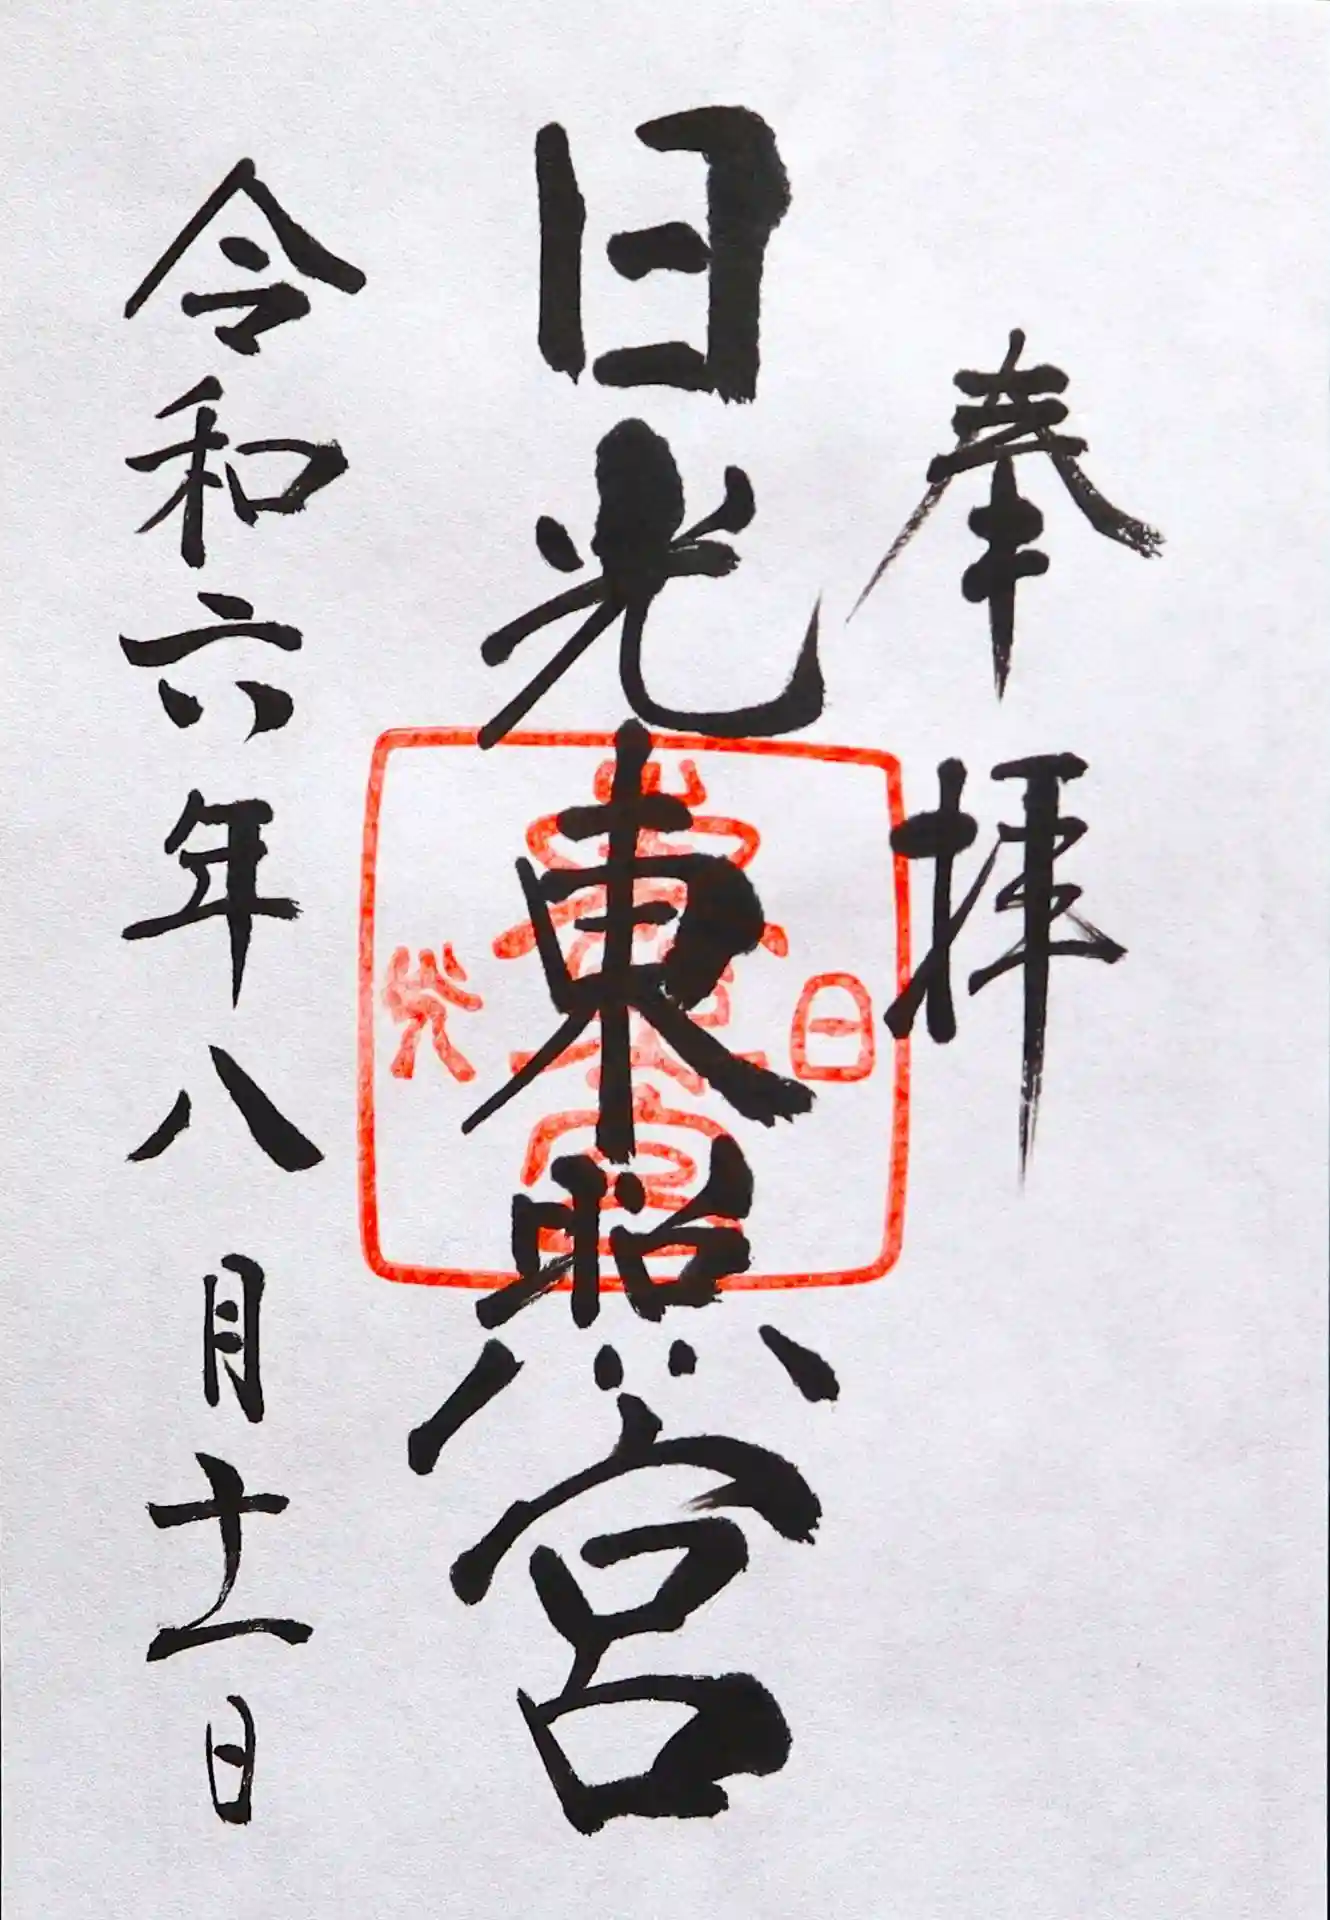 奉拝
日光東照宮
令和六年八月十一日
日
光